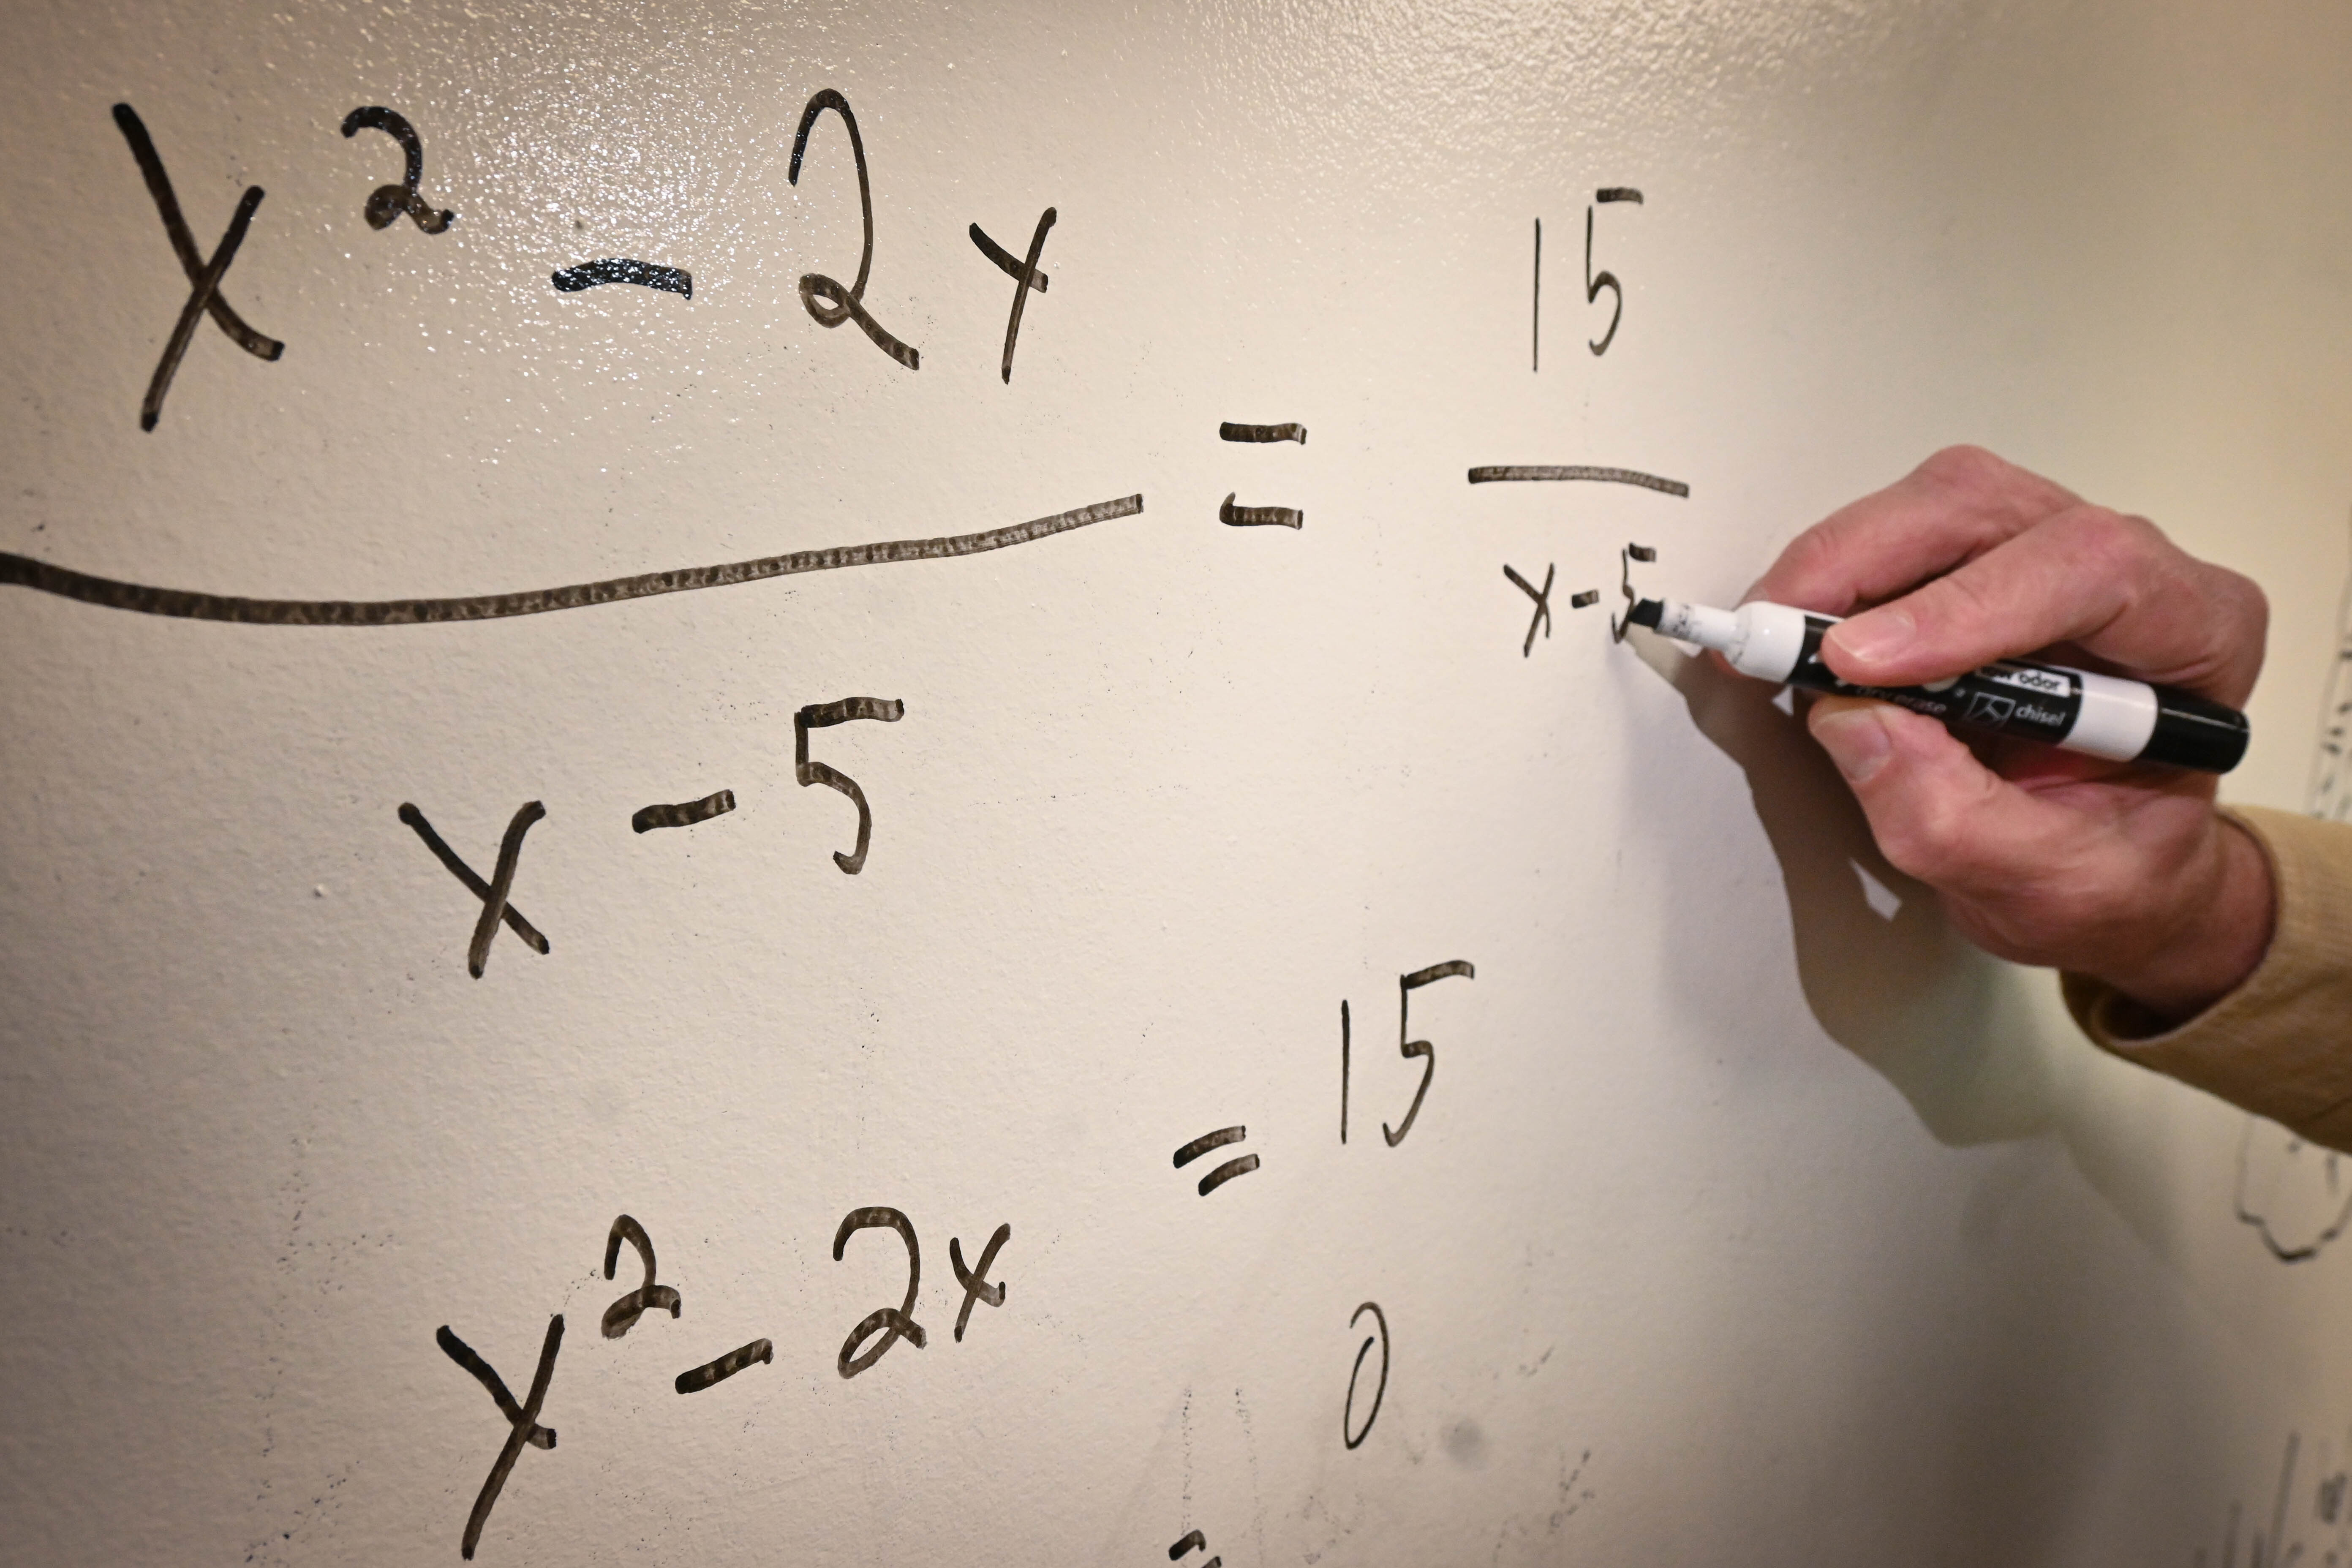 x² - 2x = 15
x - 5 x - 5
x² - 2x = 15
= 0
low odor
dry erase
chisel